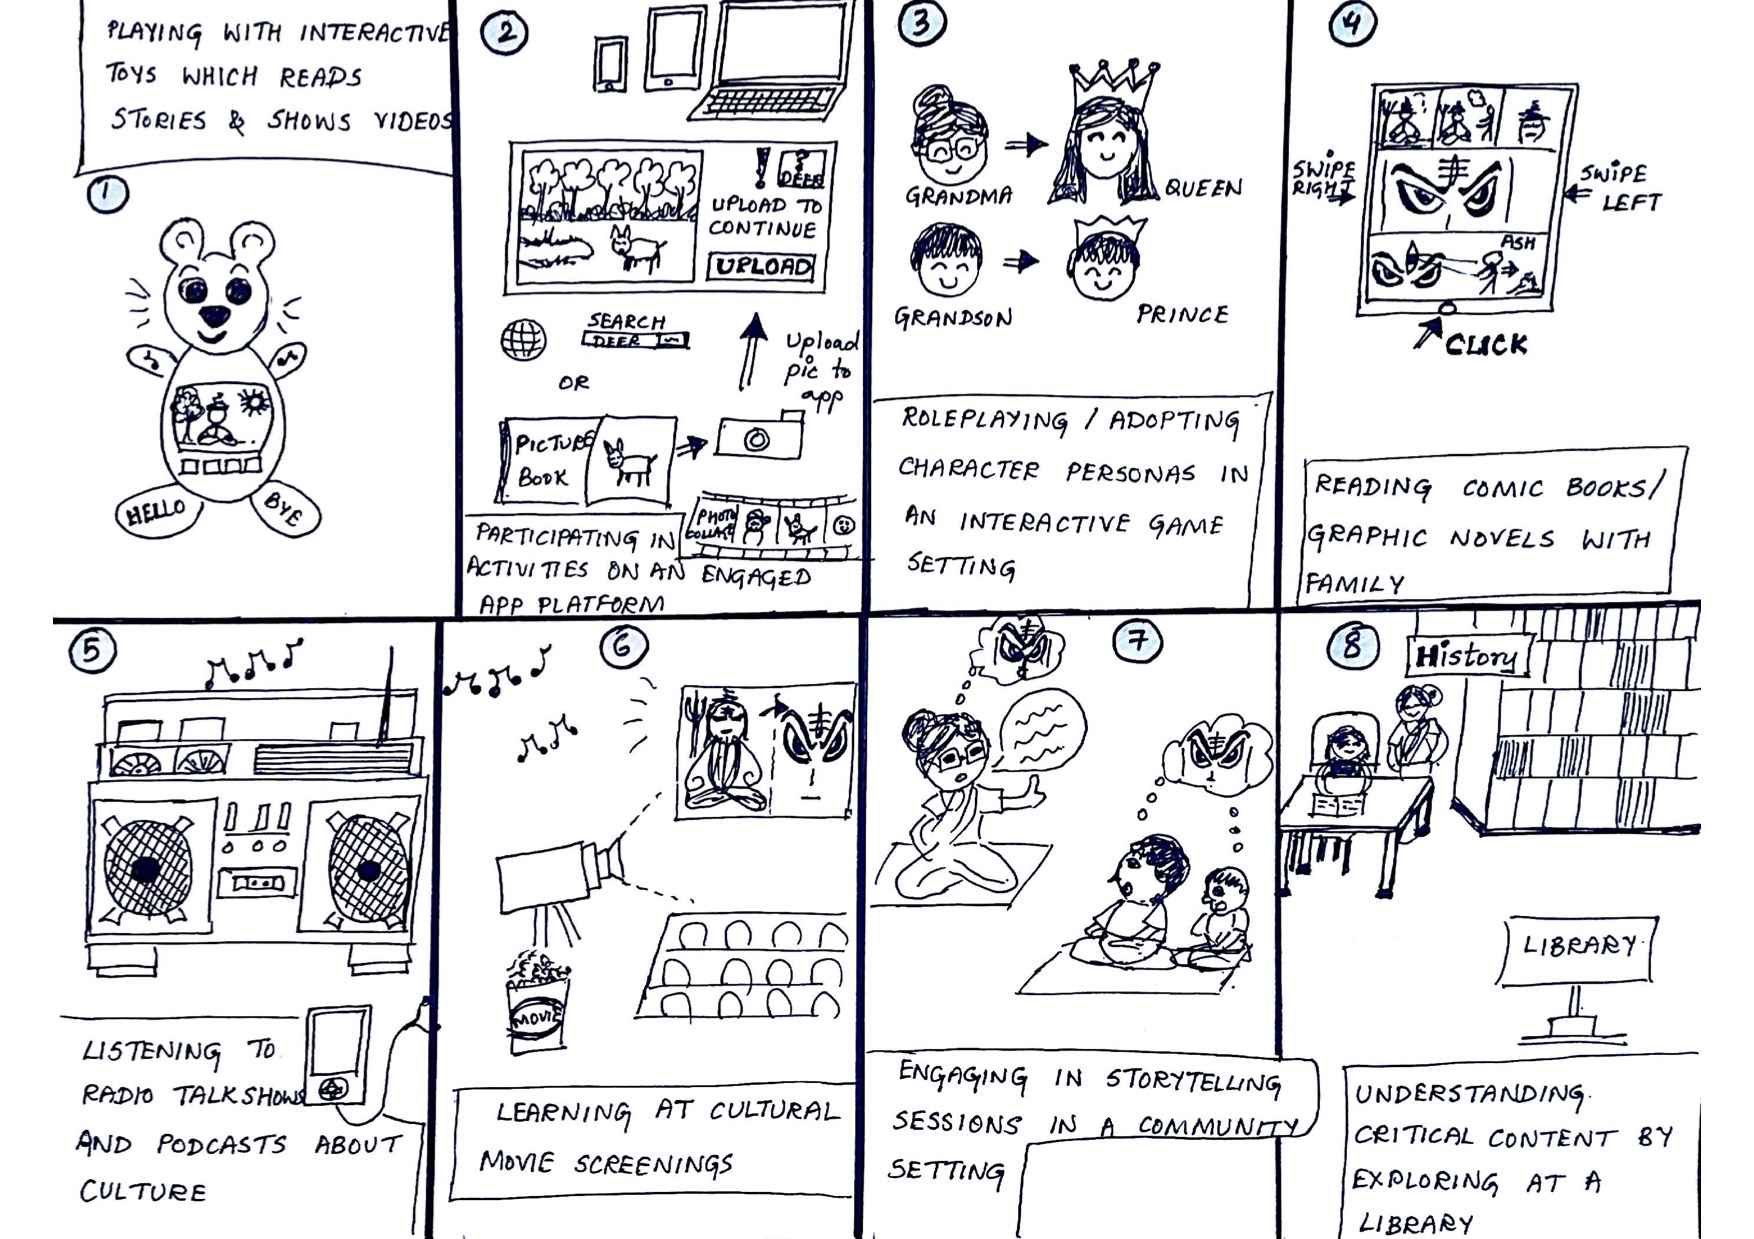 PLAYING WITH INTERACTIVE
TOYS WHICH READS
STORIES & SHOWS VIDEOS
1
HELLO
BYE
2
! ?
DEER
UPLOAD TO
CONTINUE
UPLOAD
SEARCH
DEER
OR
Upload
pic to
app
PICTURE
BOOK
PHOTO
COLLAGE
PARTICIPATING IN
ACTIVITIES ON AN ENGAGED
APP PLATFORM
3
GRANDMA
QUEEN
GRANDSON
PRINCE
ROLEPLAYING / ADOPTING
CHARACTER PERSONAS IN
AN INTERACTIVE GAME
SETTING
4
SWIPE
RIGHT
SWIPE
LEFT
ASH
CLICK
READING COMIC BOOKS/
GRAPHIC NOVELS WITH
FAMILY
5
LISTENING TO
RADIO TALKSHOWS
AND PODCASTS ABOUT
CULTURE
6
MOVIE
LEARNING AT CULTURAL
MOVIE SCREENINGS
7
ENGAGING IN STORYTELLING
SESSIONS IN A COMMUNITY
SETTING
8
History
LIBRARY
UNDERSTANDING
CRITICAL CONTENT BY
EXPLORING AT A
LIBRARY